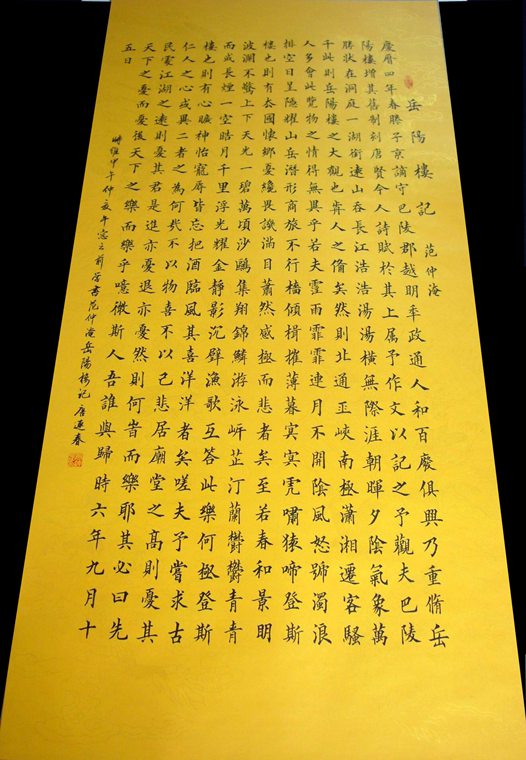 岳陽樓記 范仲淹
慶曆四年春滕子京謫守巴陵郡越明年政通人和百廢俱興乃重脩岳
陽樓增其舊制刻唐賢今人詩賦於其上屬予作文以記之予觀夫巴陵
勝狀在洞庭一湖銜遠山吞長江浩浩湯湯橫無際涯朝暉夕陰氣象萬
千此則岳陽樓之大觀也歬人之俻矣然則北通巫峽南極瀟湘遷客騷
人多會此覽物之情得無異乎若夫霪雨霏霏連月不開陰風怒號濁浪
排空日星隱耀山岳潛形商旅不行檣傾楫摧薄暮冥冥虎嘯猿啼登斯
樓也則有去國懷鄉憂讒畏譏滿目蕭然感極而悲者矣至若春和景明
波瀾不驚上下天光一碧萬頃沙鷗集翔錦鱗游泳岸芷汀蘭鬱鬱青青
而或長煙一空皓月千里浮光耀金靜影沉璧漁歌互答此樂何極登斯
樓也則有心曠神怡寵辱皆忘把酒臨風其喜洋洋者矣嗟夫予嘗求古
仁人之心或異二者之為何哉不以物喜不以己悲居廟堂之高則憂其
民處江湖之遠則憂其君是進亦憂退亦憂然則何旹而樂耶其必曰先
天下之憂而憂後天下之樂而樂乎噫微斯人吾誰與歸時六年九月十
五日
時維甲午仲夏午窓之前書范仲淹岳陽樓記